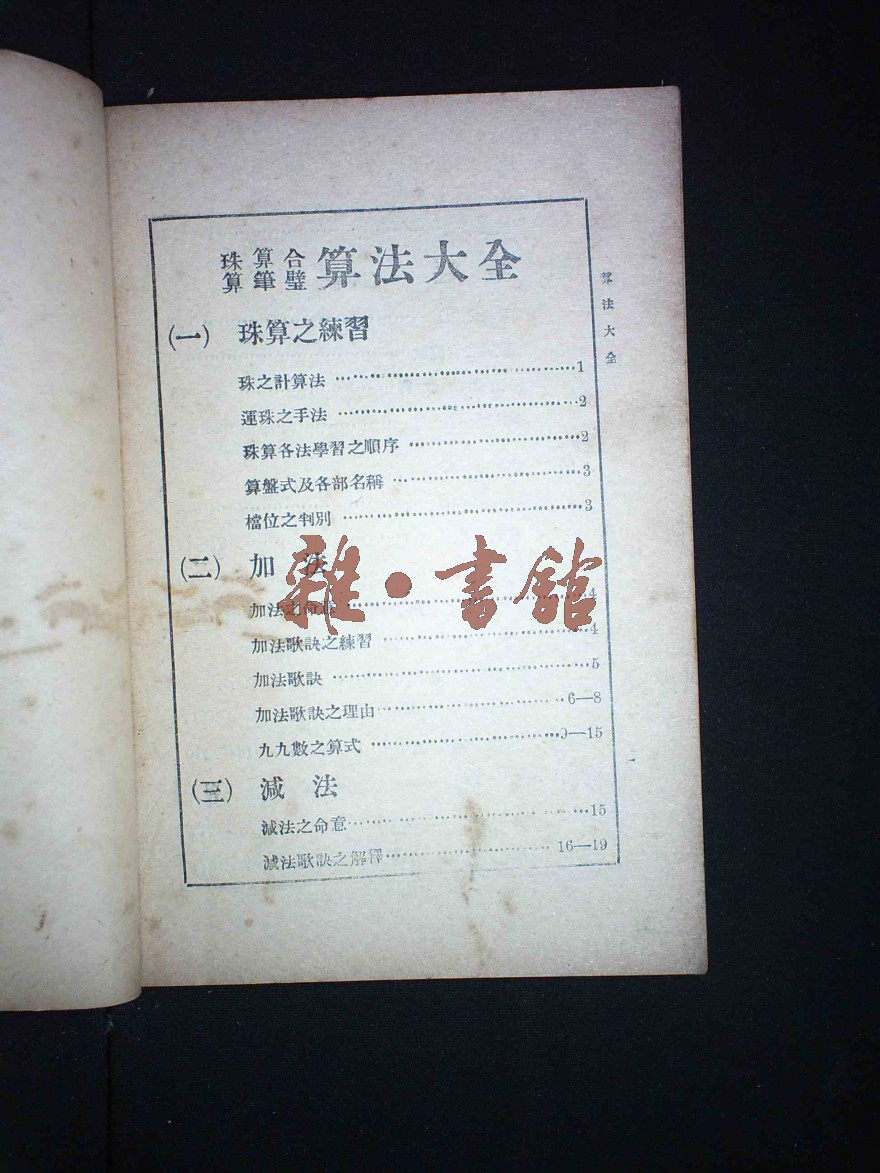 珠算合
算筆璧 算法大全
(一) 珠算之練習
珠之計算法 1
運珠之手法 2
珠算各法學習之順序 2
算盤式及各部名稱 3
檔位之判別 3
(二) 加 法
加法之命意 4
加法歌訣之練習 4
加法歌訣 5
加法歌訣之理由 6—8
九九數之算式 9—15
(三) 減 法
減法之命意 15
減法歌訣之解釋 16—19
算法大全
一
雜·書館